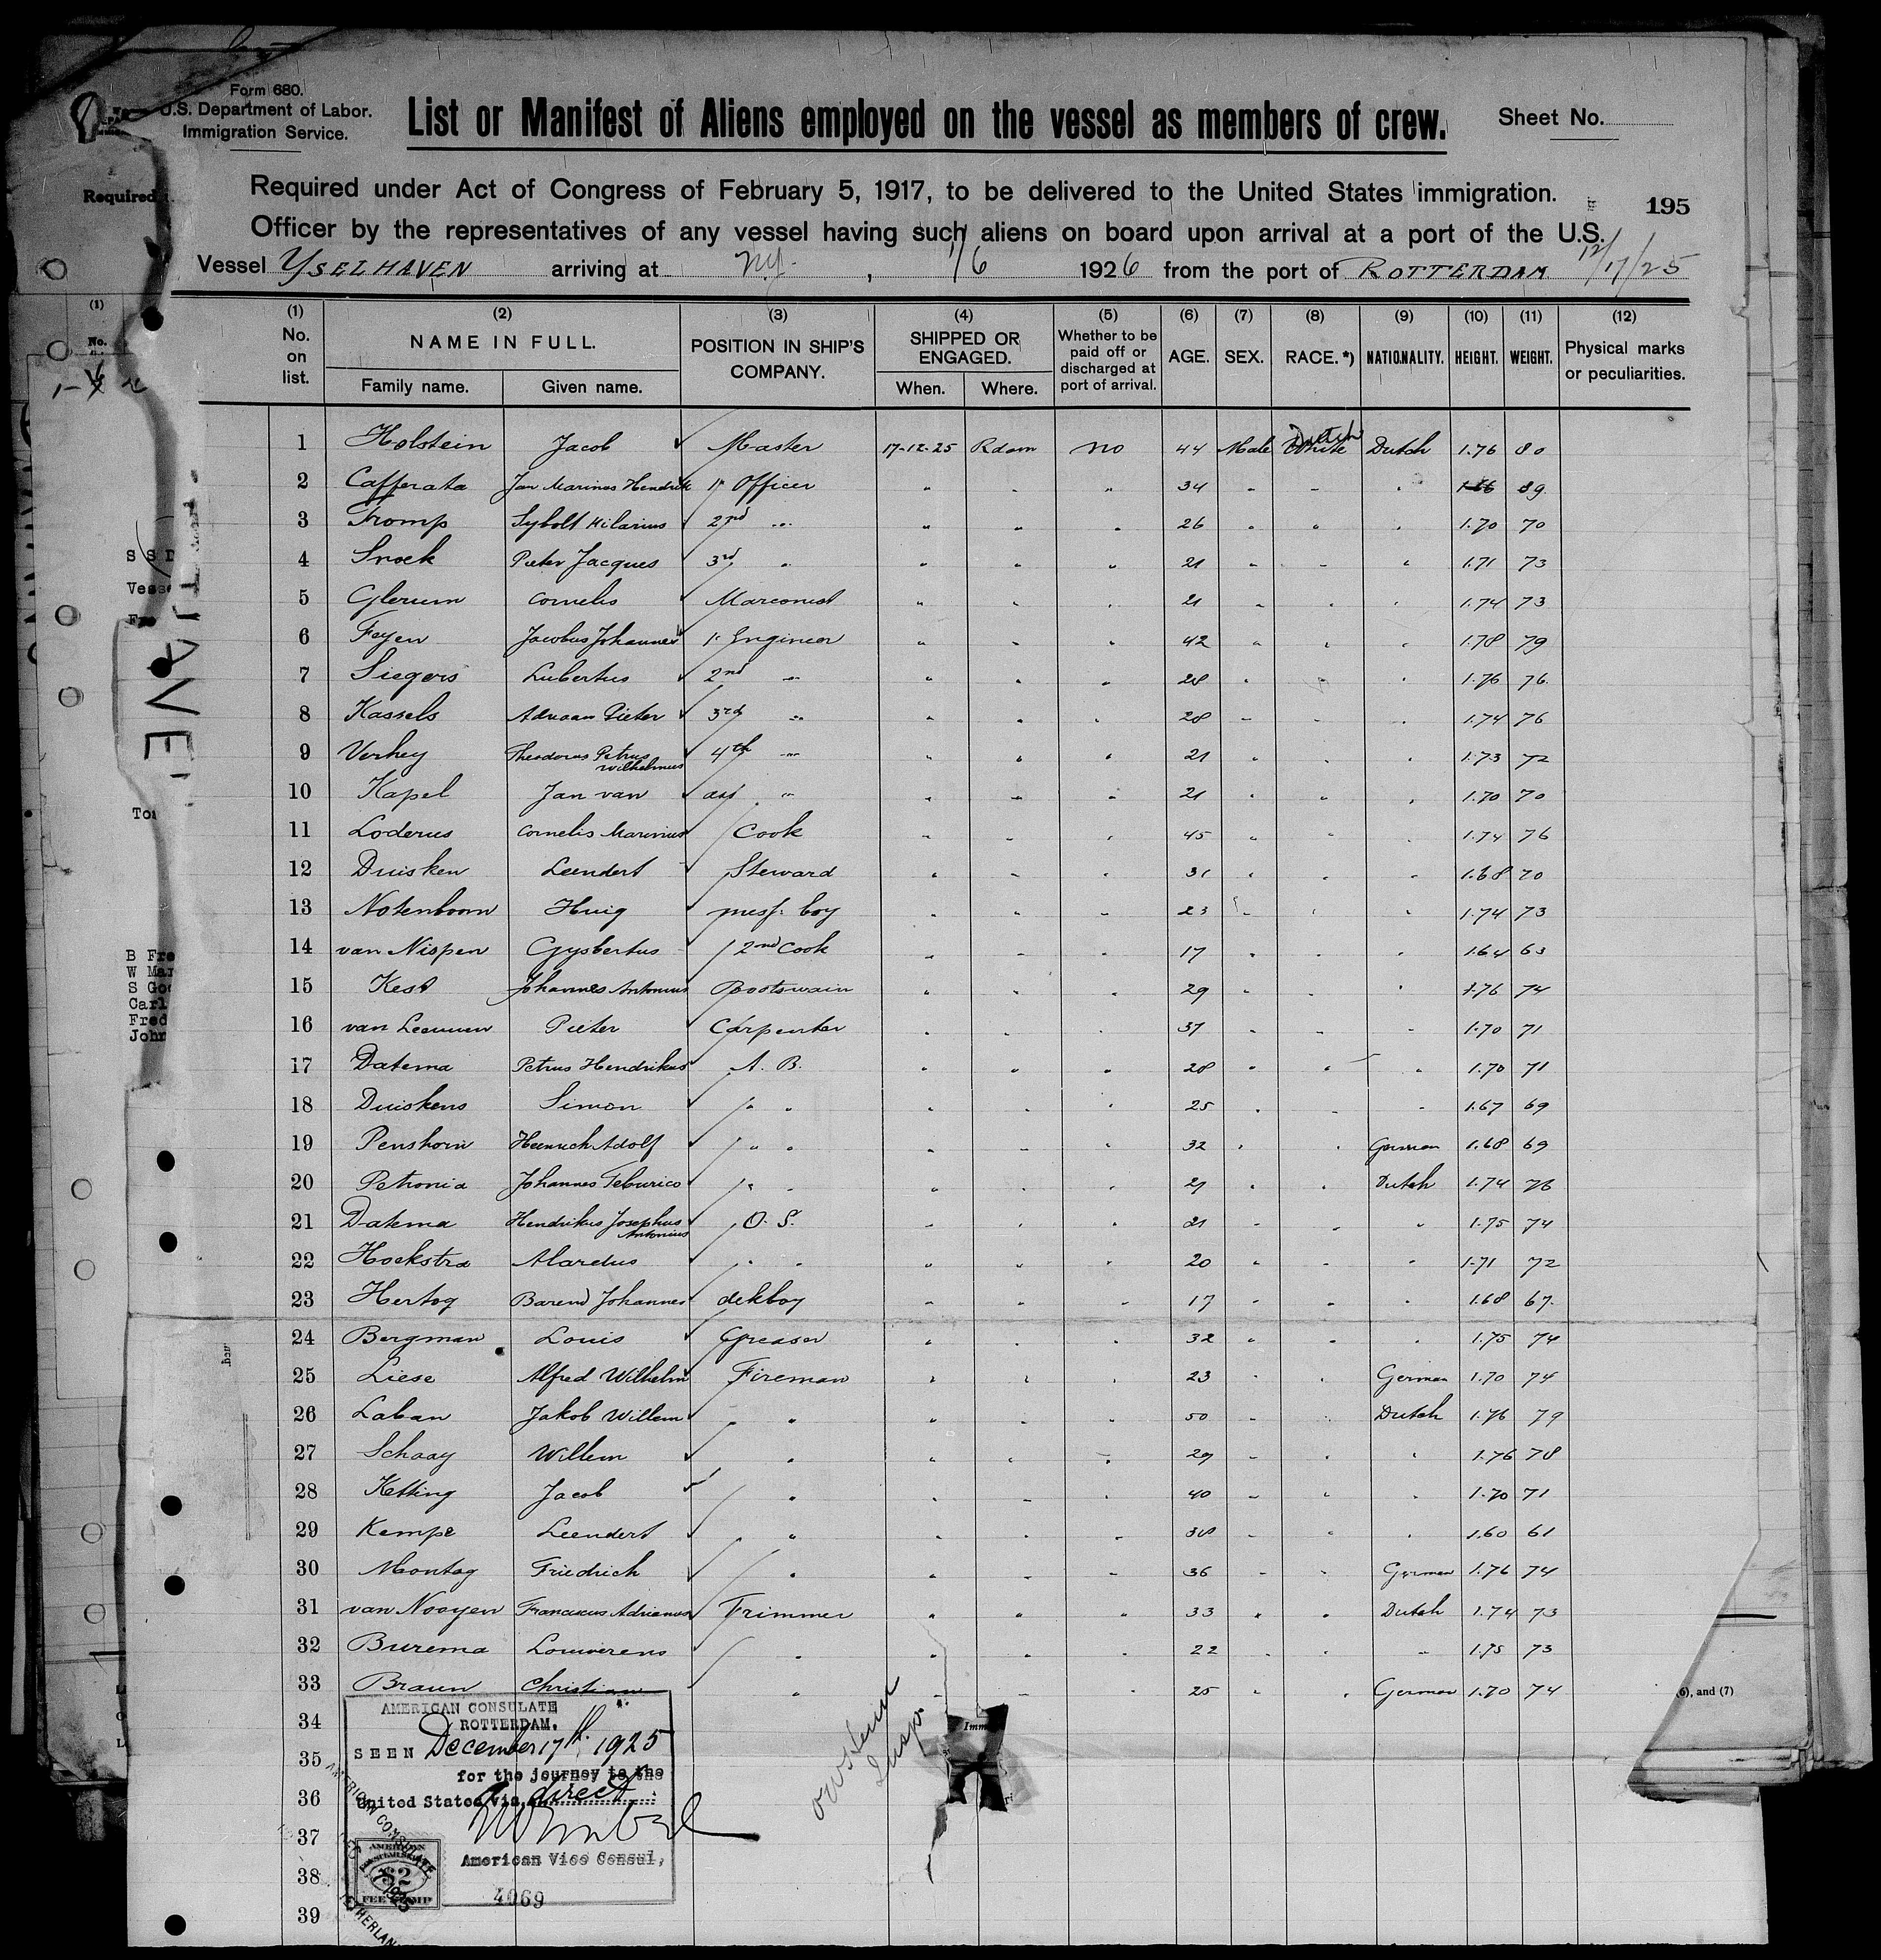 Form 680.
U.S. Department of Labor.
Immigration Service.
List or Manifest of Aliens employed on the vessel as members of crew.
Sheet No.
Required under Act of Congress of February 5, 1917, to be delivered to the United States immigration.
195
Officer by the representatives of any vessel having such aliens on board upon arrival at a port of the U.S.
Vessel YSELHAVEN arriving at N.Y. , 1/6 1926 from the port of ROTTERDAM 12/17/25
(1) (2) (3) (4) (5) (6) (7) (8) (9) (10) (11) (12)
No. on list. NAME IN FULL. POSITION IN SHIP'S COMPANY. SHIPPED OR ENGAGED. Whether to be paid off or discharged at port of arrival. AGE. SEX. RACE. *) NATIONALITY. HEIGHT. WEIGHT. Physical marks or peculiarities.
Family name. Given name. When. Where.
1 Holstein Jacob Master 17-12-25 Rdam no 44 Male White Dutch Dutch 1.76 80
2 Cafferata Jan Marinus Hendrik 1e Officer " " " 34 " " " 89
3 Tromp Sybolt Hilarius 2nd " " " " 26 " " " 1.70 70
4 Snoek Pieter Jacques 3rd " " " " 21 " " " 1.71 73
5 Glerum Cornelis Marconist " " " 21 " " " 1.74 73
6 Feyen Jacobus Johannes 1e Engineer " " " 42 " " " 1.78 79
7 Siegers Lubertus 2nd " " " " 28 " " " 1.76 76
8 Kassels Adriaan Pieter 3rd " " " " 28 " " " 1.74 76
9 Verhey Theodorus Petrus Wilhelmus 4th " " " " 21 " " " 1.73 72
10 Kapel Jan van ass " " " " 21 " " " 1.70 70
11 Loderus Cornelis Marinus Cook " " " 45 " " " 1.74 76
12 Duisken Leendert Steward " " " 31 " " " 1.68 70
13 Notenboom Huig mess boy " " " 23 " " " 1.74 73
14 van Nispen Gysbertus 2nd Cook " " " 17 " " " 1.64 63
15 Kest Johannes Antonius Bootswain " " " 29 " " " 1.76 74
16 van Leeuwen Pieter Carpenter " " " 37 " " " 1.70 71
17 Datema Petrus Hendrikus A. B. " " " 28 " " " 1.70 71
18 Duiskens Simon " " " " " 25 " " " 1.67 69
19 Penshorn Heinrich Adolf " " " " " 32 " " German 1.68 69
20 Petronia Johannes " " " " " " " Dutch 1.74 76
21 Datema Hendrikus Josephus Antonius O. S. " " " 21 " " " 1.75 74
22 Hoekstra Alardus " " " " " 20 " " " 1.71 72
23 Hertog Barend Johannes dekboy " " " 17 " " " 1.68 67
24 Bergman Louis Greaser " " " 32 " " " 1.75 74
25 Liese Alfred Wilhelm Fireman " " " 23 " " German 1.70 74
26 Laban Jakob Willem " " " " " 50 " " Dutch 1.76 79
27 Schaay Willem " " " " 29 " " " 1.76 78
28 Ketting Jacob " " " " 40 " " " 1.70 71
29 Kempe Leendert " " " " " 38 " " " 1.60 61
30 Montag Friedrich " " " " 36 " " German 1.76 74
31 van Nooyen Franciscus Adrianus Trimmer " " " 33 " " Dutch 1.74 73
32 Burema Louwerens " " " " 22 " " " 1.75 73
33 Braun Christian " " " " 25 " " German 1.70 74
34
35
36
37
38
39
AMERICAN CONSULATE
ROTTERDAM.
SEEN December 17th. 1925
for the journey to the
United States via direct
American Vice Consul,
4069
AMERICAN
$2
FEE STAMP
AMERICAN CONSULATE
1925
Insp.
Imm
(6), and (7)
Required
(1)
No.
S S D
Vesse
B Fre
W Mar
S Goo
Carl
Fred
John